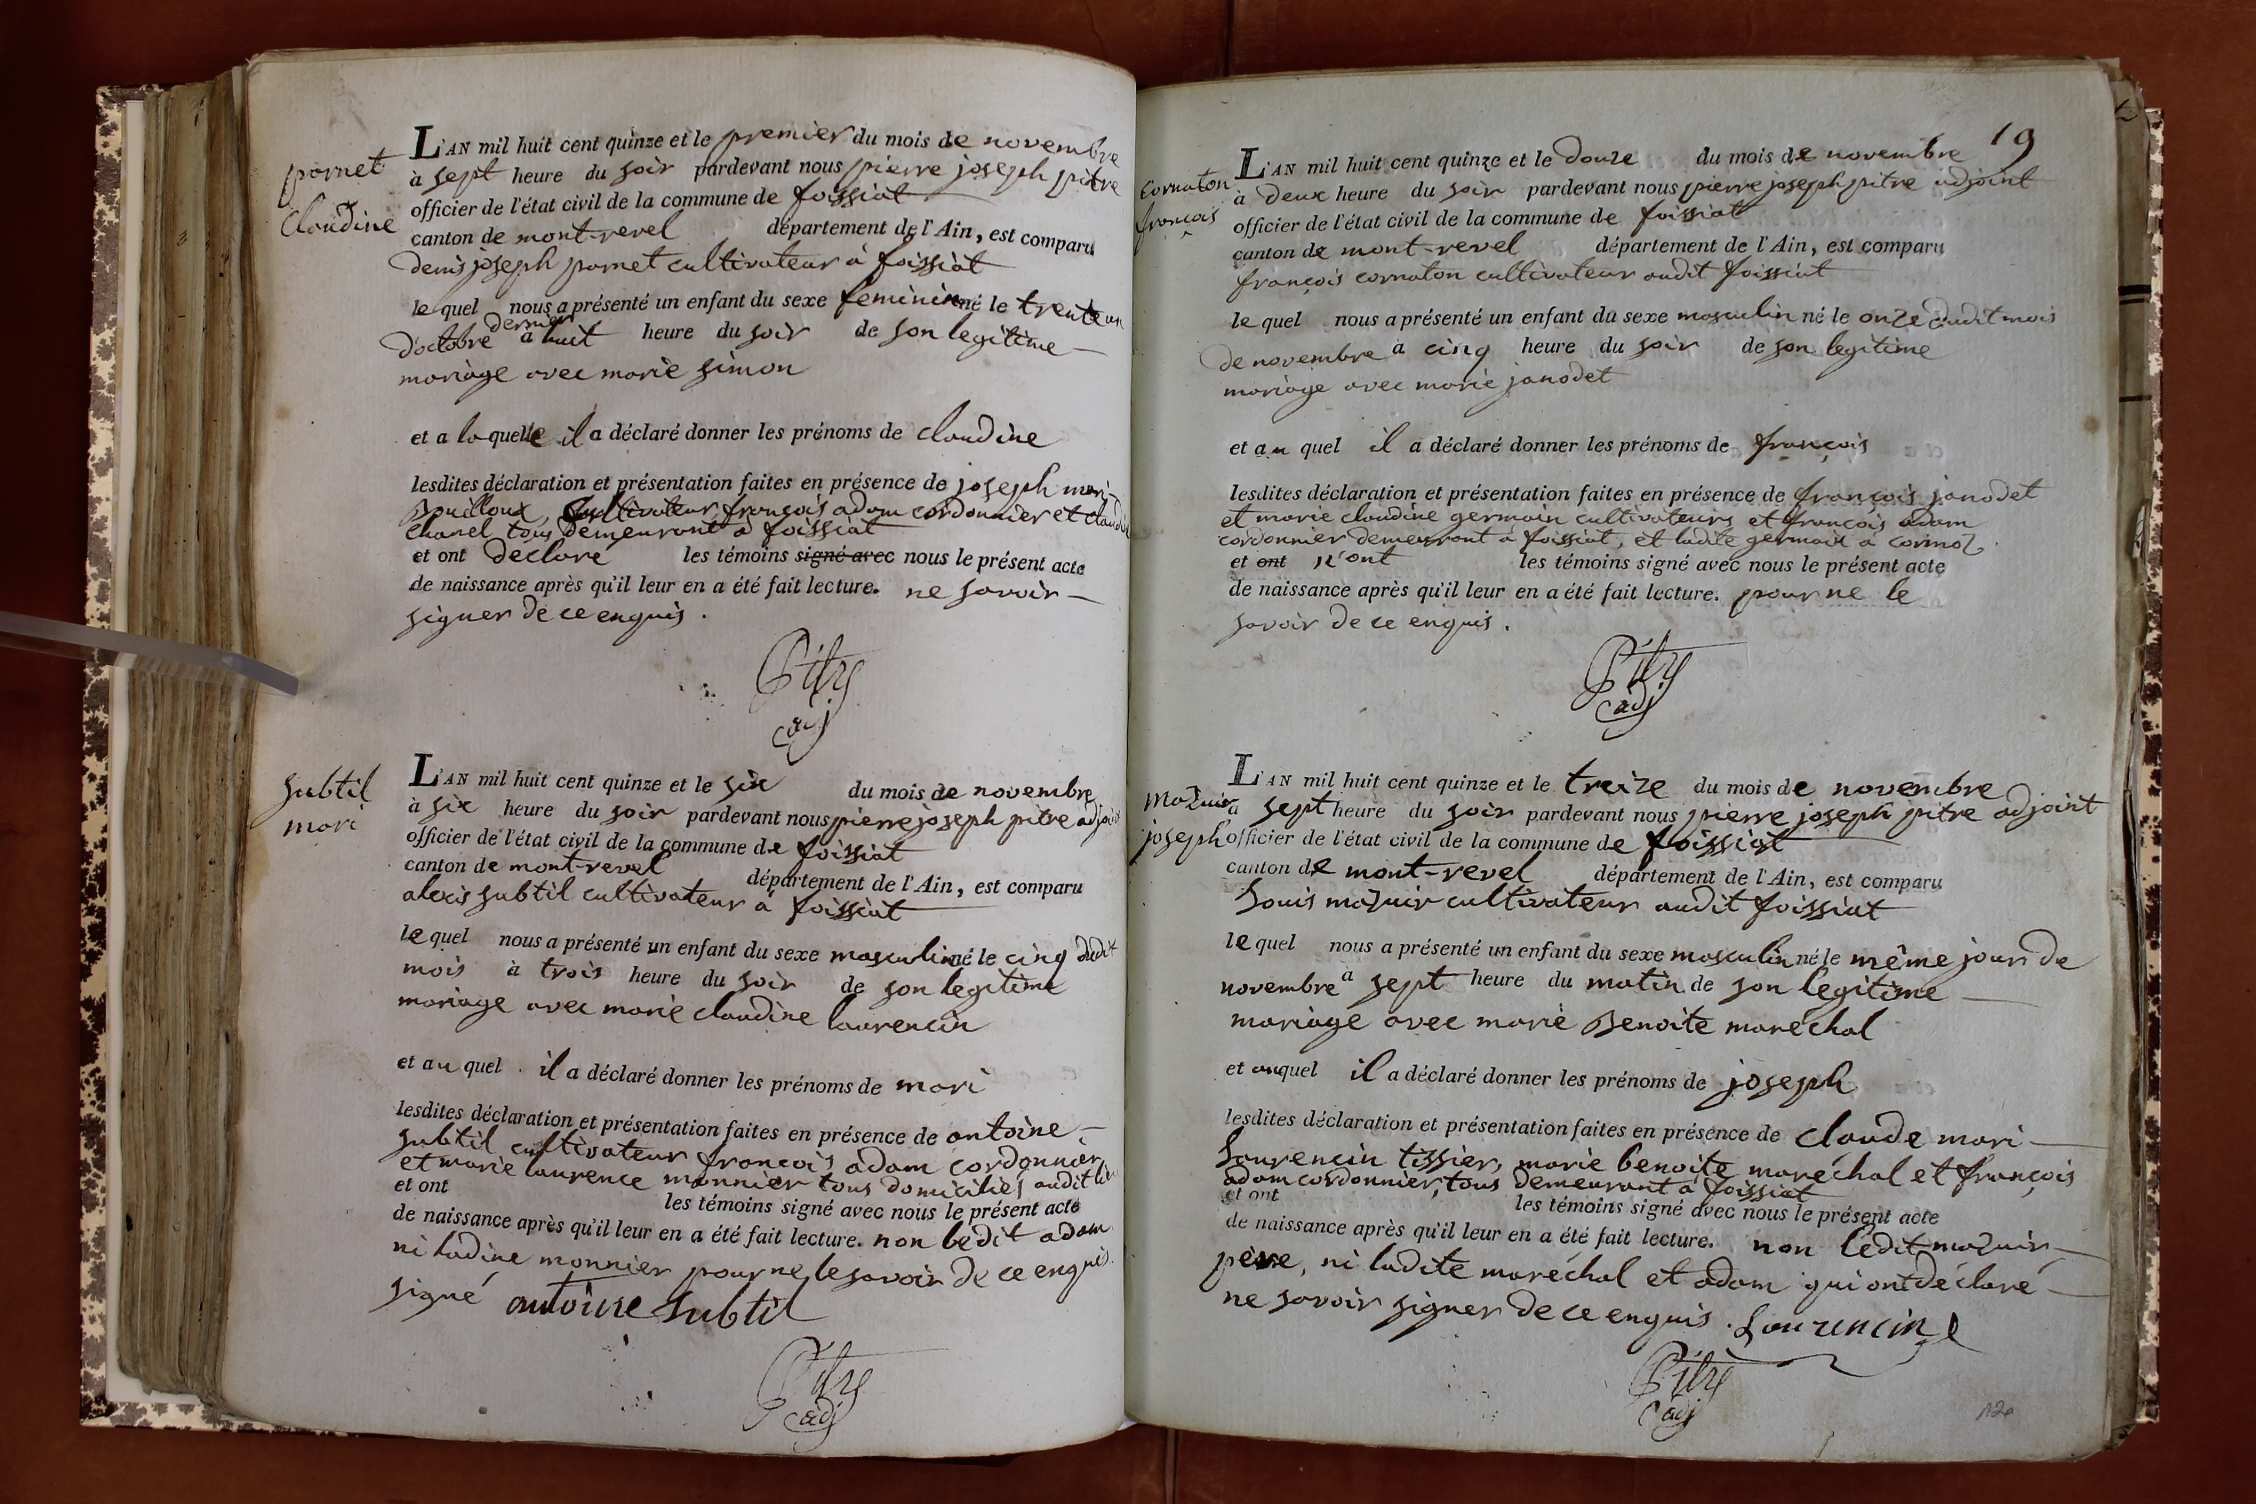 pornet
Claudine
L'AN mil huit cent quinze et le premier du mois de novembre
à sept heure du soir pardevant nous pierre joseph pitre
officier de l'état civil de la commune de foissiat
canton de mont-revel département de l'Ain, est comparu
denis joseph pornet cultivateur à foissiat
le quel nous a présenté un enfant du sexe feminin né le trente un
d'octobre dernier à huit heure du soir de son legitime
mariage avec marie simon
et a la quelle il a déclaré donner les prénoms de claudine
lesdites déclaration et présentation faites en présence de joseph mari
Bouilloux, Cultivateur, françois adam cordonnier et claude
chanel tous demeurant à foissiat
et ont declaré les témoins signé avec nous le présent acte
de naissance après qu'il leur en a été fait lecture. ne savoir
signer de ce enquis.
Pitre
adj
subtil
mari
L'AN mil huit cent quinze et le six du mois de novembre
à six heure du soir pardevant nous pierre joseph pitre adjoint
officier de l'état civil de la commune de foissiat
canton de mont-revel département de l'Ain, est comparu
alexis subtil cultivateur à foissiat
le quel nous a présenté un enfant du sexe masculin né le cinq dudit
mois à trois heure du soir de son legitime
mariage avec marie claudine laurencin
et au quel il a déclaré donner les prénoms de mari
lesdites déclaration et présentation faites en présence de antoine
subtil cultivateur françois adam cordonnier
et marie laurence monnier tous domiciliés audit lieu
et ont les témoins signé avec nous le présent acte
de naissance après qu'il leur en a été fait lecture. non ledit adam
ni ladine monnier pour ne le savoir de ce enquis.
signé antoine subtil
Pitre
adj
19
Cornaton
françois
L'AN mil huit cent quinze et le douze du mois de novembre
à deux heure du soir pardevant nous pierre joseph pitre adjoint
officier de l'état civil de la commune de foissiat
canton de mont-revel département de l'Ain, est comparu
françois cornaton cultivateur audit foissiat
le quel nous a présenté un enfant du sexe masculin né le onze dudit mois
de novembre à cinq heure du soir de son legitime
mariage avec marie janodet
et au quel il a déclaré donner les prénoms de françois
lesdites déclaration et présentation faites en présence de françois janodet
et marie claudine germain cultivateurs et françois adam
cordonnier demeurant à foissiat, et ladite germain a cormoz.
et ont n'ont les témoins signé avec nous le présent acte
de naissance après qu'il leur en a été fait lecture. pour ne le
savoir de ce enquis.
Pitre
adj
Mazuir
joseph
L'AN mil huit cent quinze et le treize du mois de novembre
à sept heure du soir pardevant nous pierre joseph pitre adjoint
officier de l'état civil de la commune de foissiat
canton de mont-revel département de l'Ain, est comparu
Louis mazuir cultivateur audit foissiat
le quel nous a présenté un enfant du sexe masculin né le même jour de
novembre à sept heure du matin de son legitime
mariage avec marie Benoite maréchal
et auquel il a déclaré donner les prénoms de joseph
lesdites déclaration et présentation faites en présence de claude mari
Laurencin tissier, marie benoite maréchal et françois
adam cordonnier, tous demeurant à foissiat
et ont les témoins signé avec nous le présent acte
de naissance après qu'il leur en a été fait lecture. non ledit mazuir
père, ni ladite maréchal et adam qui ont déclaré
ne savoir signer de ce enquis. Laurencin
Pitre
adj